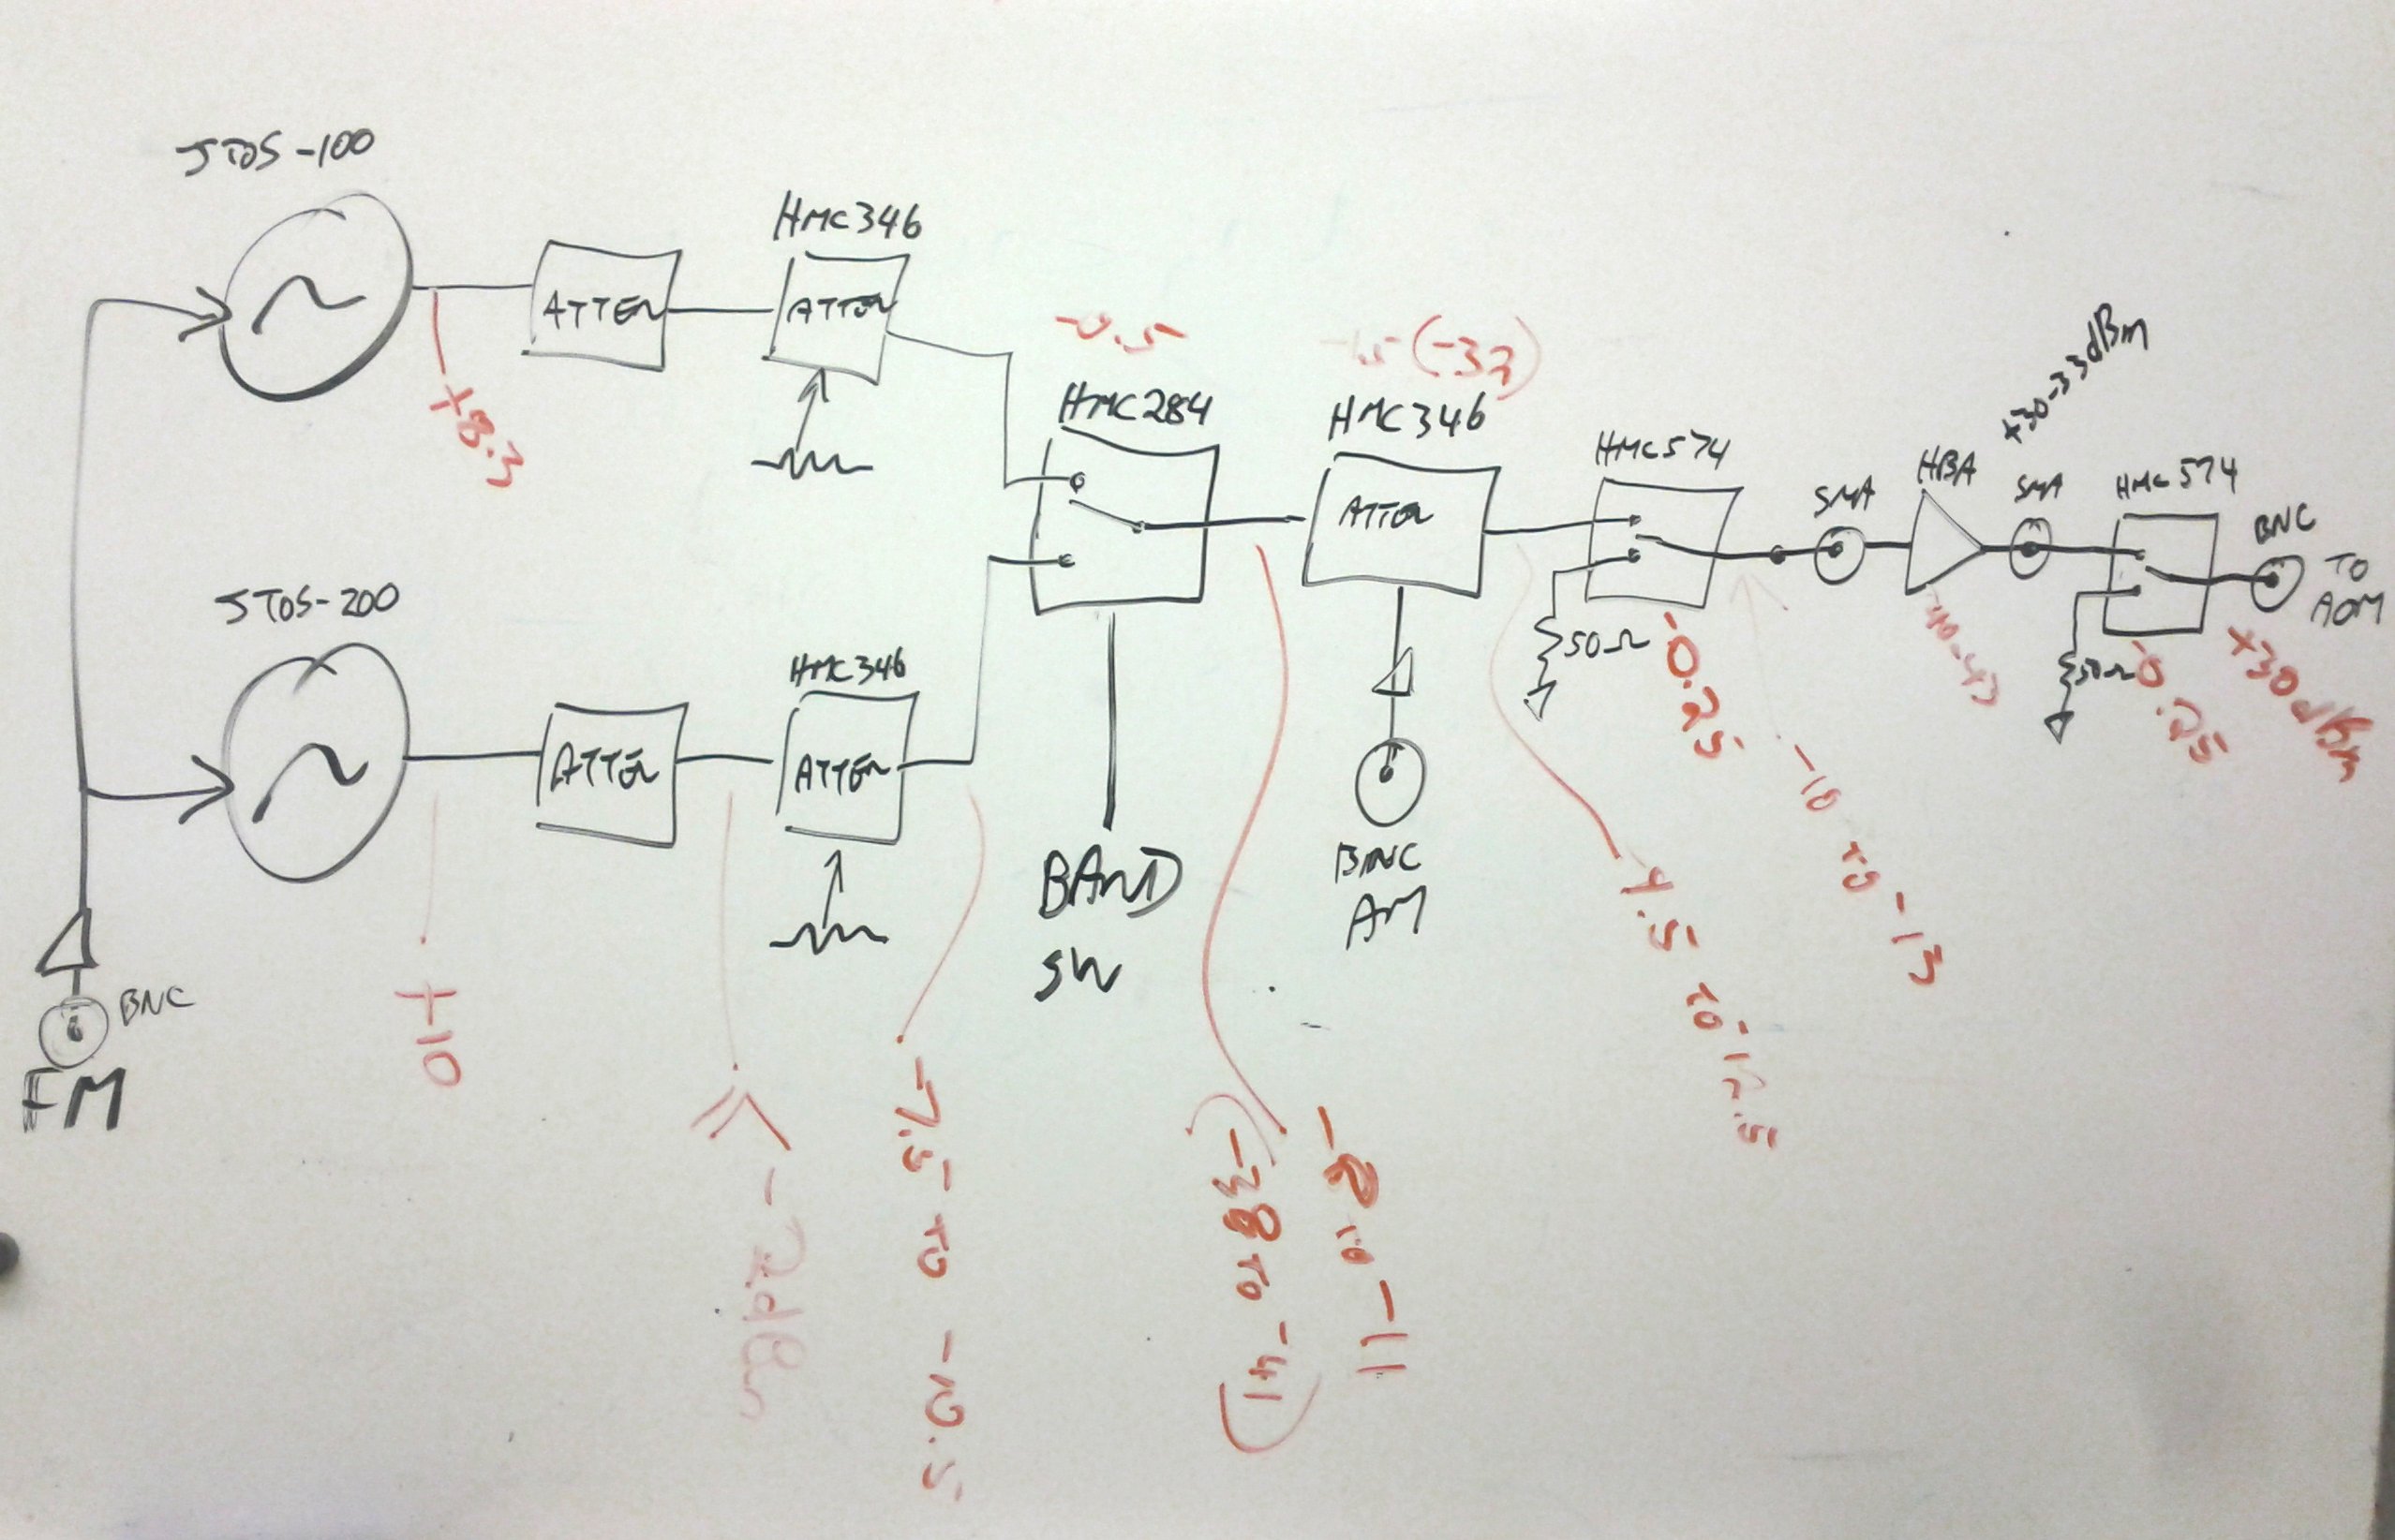 JTOS-100
HMC346
ATTEN
ATTEN
+8.3
-0.5
HMC284
-1.5 (-33)
HMC346
ATTEN
HMC574
50Ω
-0.25
SMA
HBA
+30-33dBm
SMA
HMC574
BNC
TO
AOM
50Ω
-0.25
+30dBm
JTOS-200
HMC346
ATTEN
ATTEN
BAND
SW
BNC
AM
-10 TO -13
BNC
FM
+10
≤ -2dBm
-7.5 TO -10.5
-8 TO -11